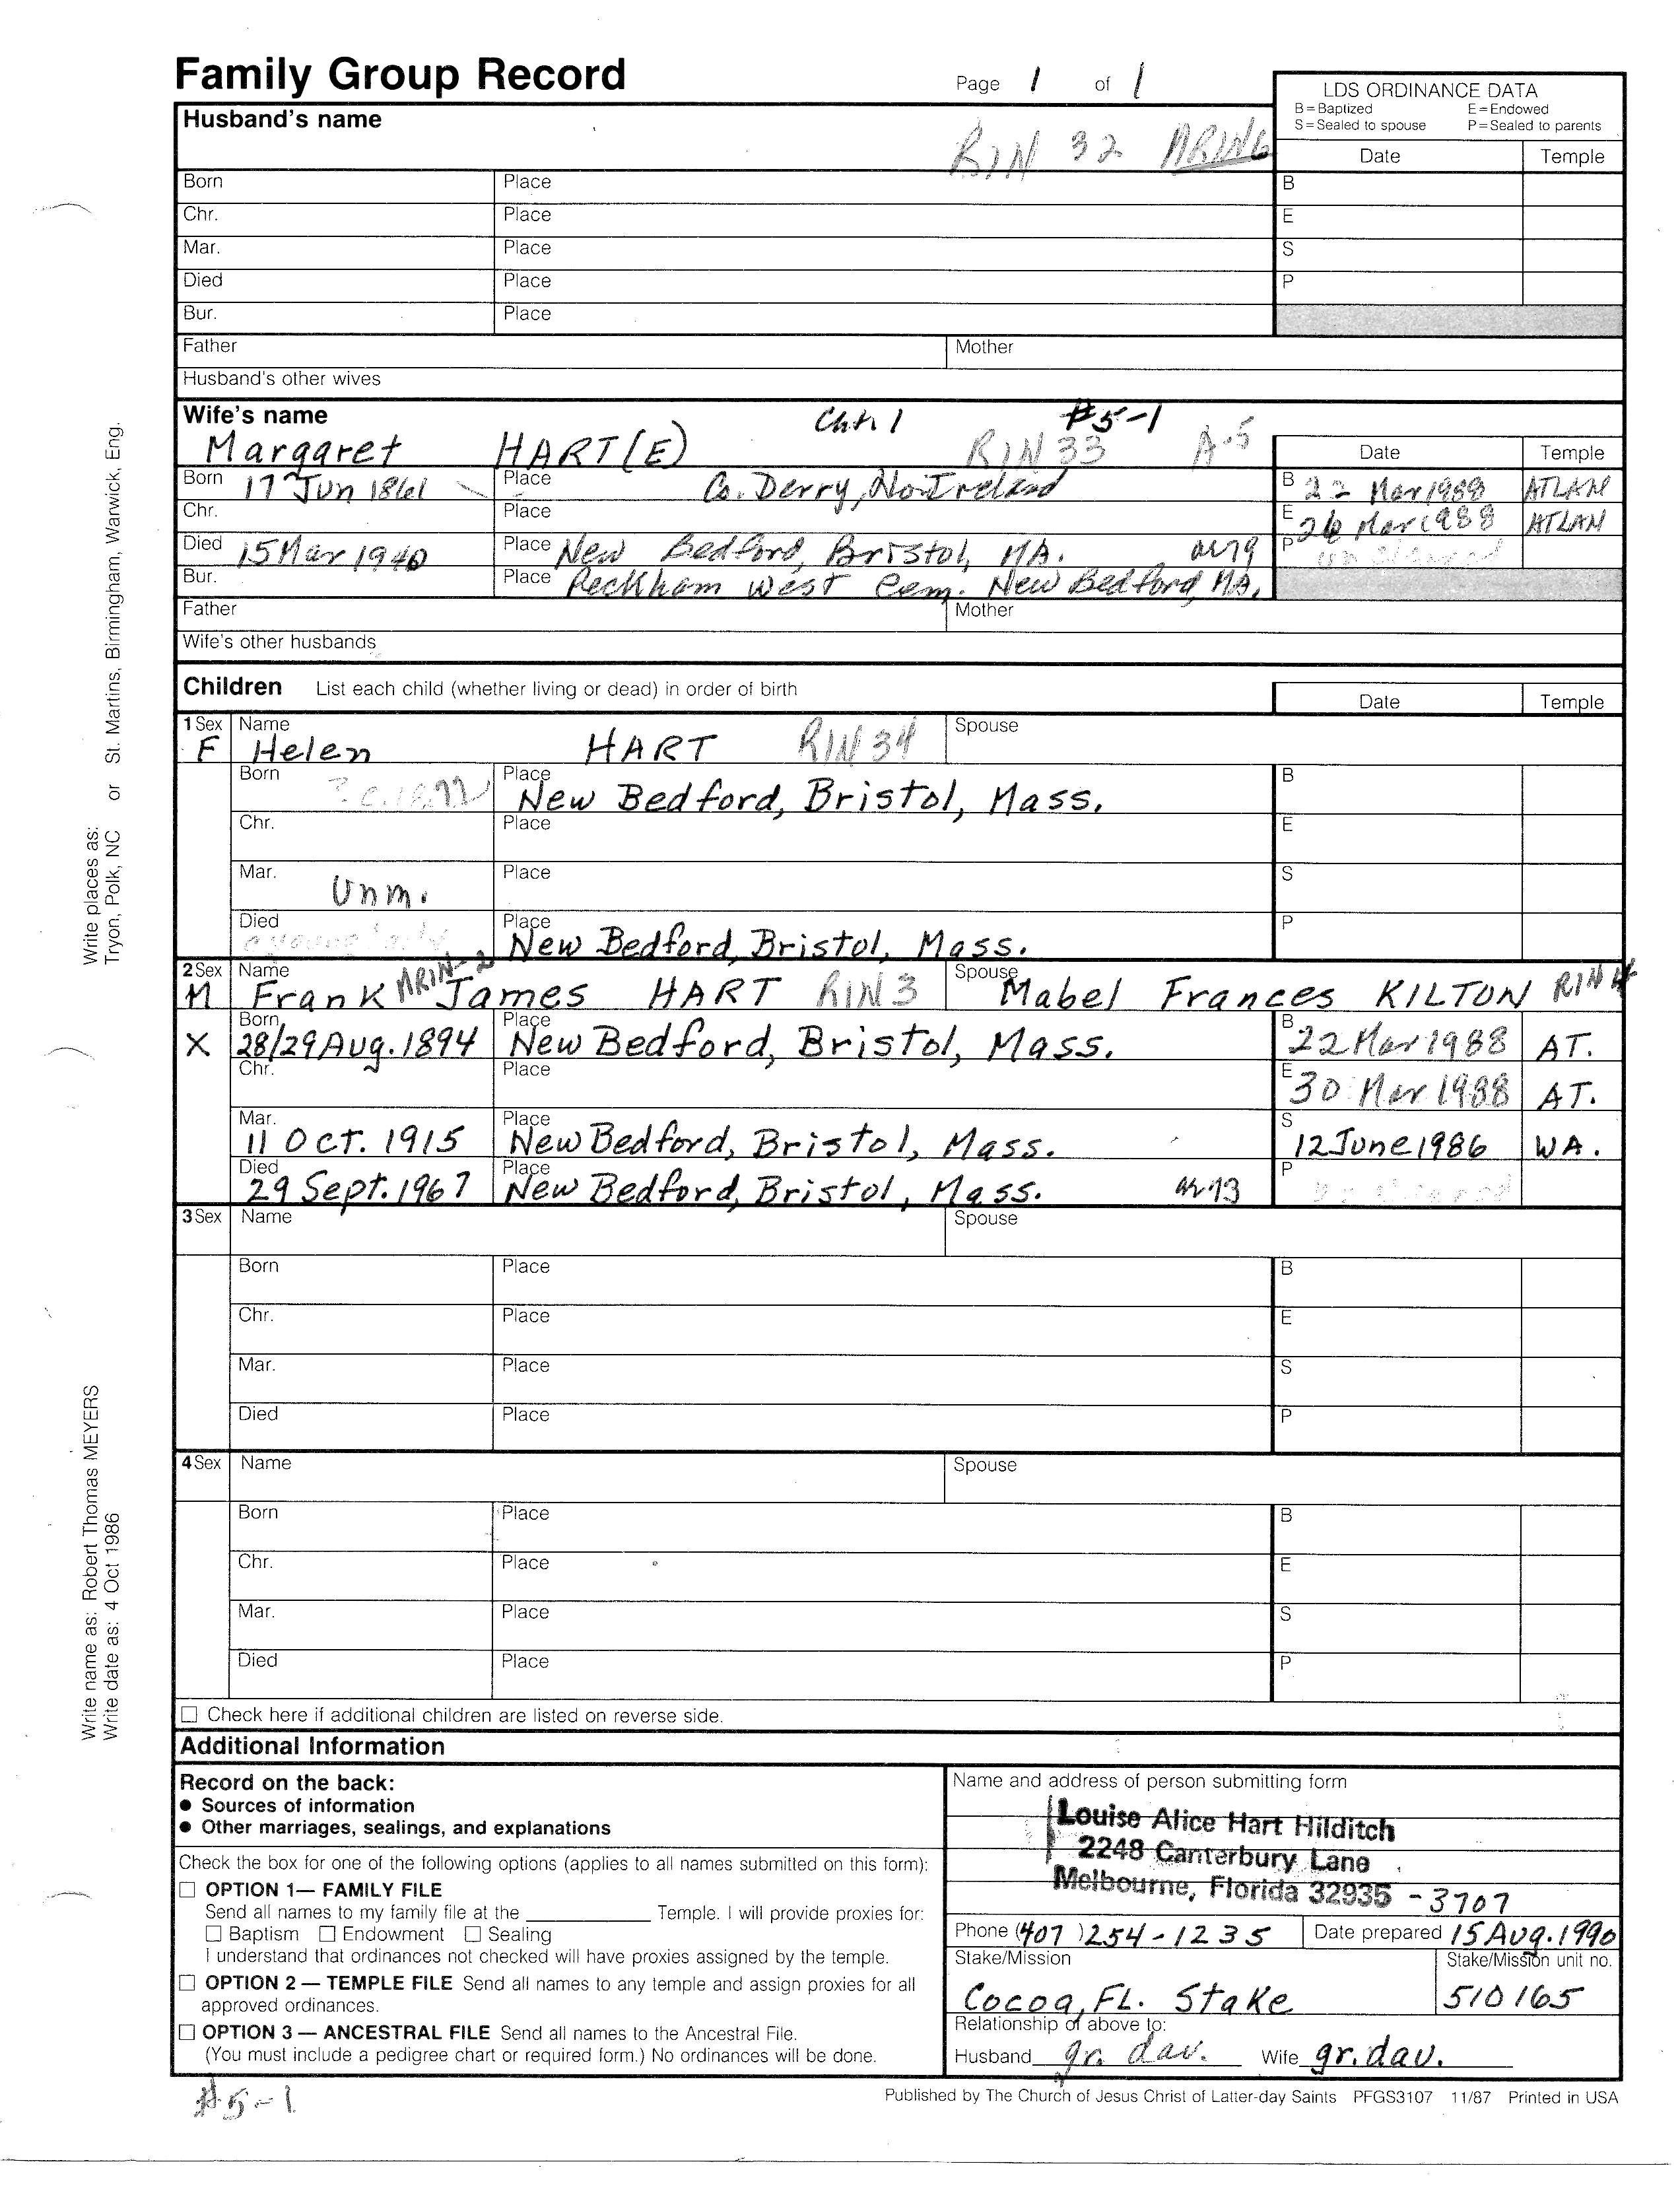 Family Group Record
Page 1 of 1
LDS ORDINANCE DATA
B=Baptized E=Endowed
S=Sealed to spouse P=Sealed to parents
Husband's name
RIN 32 MRIN6
Date Temple
Born Place B
Chr. Place E
Mar. Place S
Died Place P
Bur. Place
Father Mother
Husband's other wives
Wife's name Cht. 1 #5-1
Margaret HART(E) RIN 33 A-5
Date Temple
Born 17 Jun 1861 Place Co. Derry, No. Ireland B 22 Mar 1988 ATLAN
Chr. Place E 26 Mar 1988 ATLAN
Died 15 Mar 1940 Place New Bedford, Bristol, MA. 79 P uncleared
Bur. Place Peckham West Cem. New Bedford, MA.
Father Mother
Wife's other husbands
Children List each child (whether living or dead) in order of birth
Date Temple
1 Sex Name Spouse
F Helen HART RIN 34
Born Place New Bedford, Bristol, Mass. B
Chr. Place E
Mar. Unm. Place S
Died Place New Bedford, Bristol, Mass. P
2 Sex Name Spouse
M Frank MRIN-2 James HART RIN 3 Mabel Frances KILTON RIN 4
X Born 28/29 Aug. 1894 Place New Bedford, Bristol, Mass. B 22 Mar 1988 AT.
Chr. Place E 30 Mar 1988 AT.
Mar. 11 Oct. 1915 Place New Bedford, Bristol, Mass. S 12 June 1986 WA.
Died 29 Sept. 1967 Place New Bedford, Bristol, Mass. 73 P uncleared
3 Sex Name Spouse
Born Place B
Chr. Place E
Mar. Place S
Died Place P
4 Sex Name Spouse
Born Place B
Chr. Place E
Mar. Place S
Died Place P
☐ Check here if additional children are listed on reverse side.
Additional Information
Record on the back:
● Sources of information
● Other marriages, sealings, and explanations
Check the box for one of the following options (applies to all names submitted on this form):
☐ OPTION 1— FAMILY FILE
Send all names to my family file at the ____________ Temple. I will provide proxies for:
☐ Baptism ☐ Endowment ☐ Sealing
I understand that ordinances not checked will have proxies assigned by the temple.
☐ OPTION 2 — TEMPLE FILE Send all names to any temple and assign proxies for all
approved ordinances.
☐ OPTION 3 — ANCESTRAL FILE Send all names to the Ancestral File.
(You must include a pedigree chart or required form.) No ordinances will be done.
Name and address of person submitting form
Louise Alice Hart Hilditch
2248 Canterbury Lane
Melbourne, Florida 32935 -3707
Phone (407) 254-1235 Date prepared 15 Aug. 1990
Stake/Mission Stake/Mission unit no.
Cocoa, FL. Stake 510165
Relationship of above to:
Husband gr. dau. Wife gr. dau.
#5-1
Published by The Church of Jesus Christ of Latter-day Saints PFGS3107 11/87 Printed in USA
Write places as:
Tryon, Polk, NC or St. Martins, Birmingham, Warwick, Eng.
Write name as: Robert Thomas MEYERS
Write date as: 4 Oct 1986